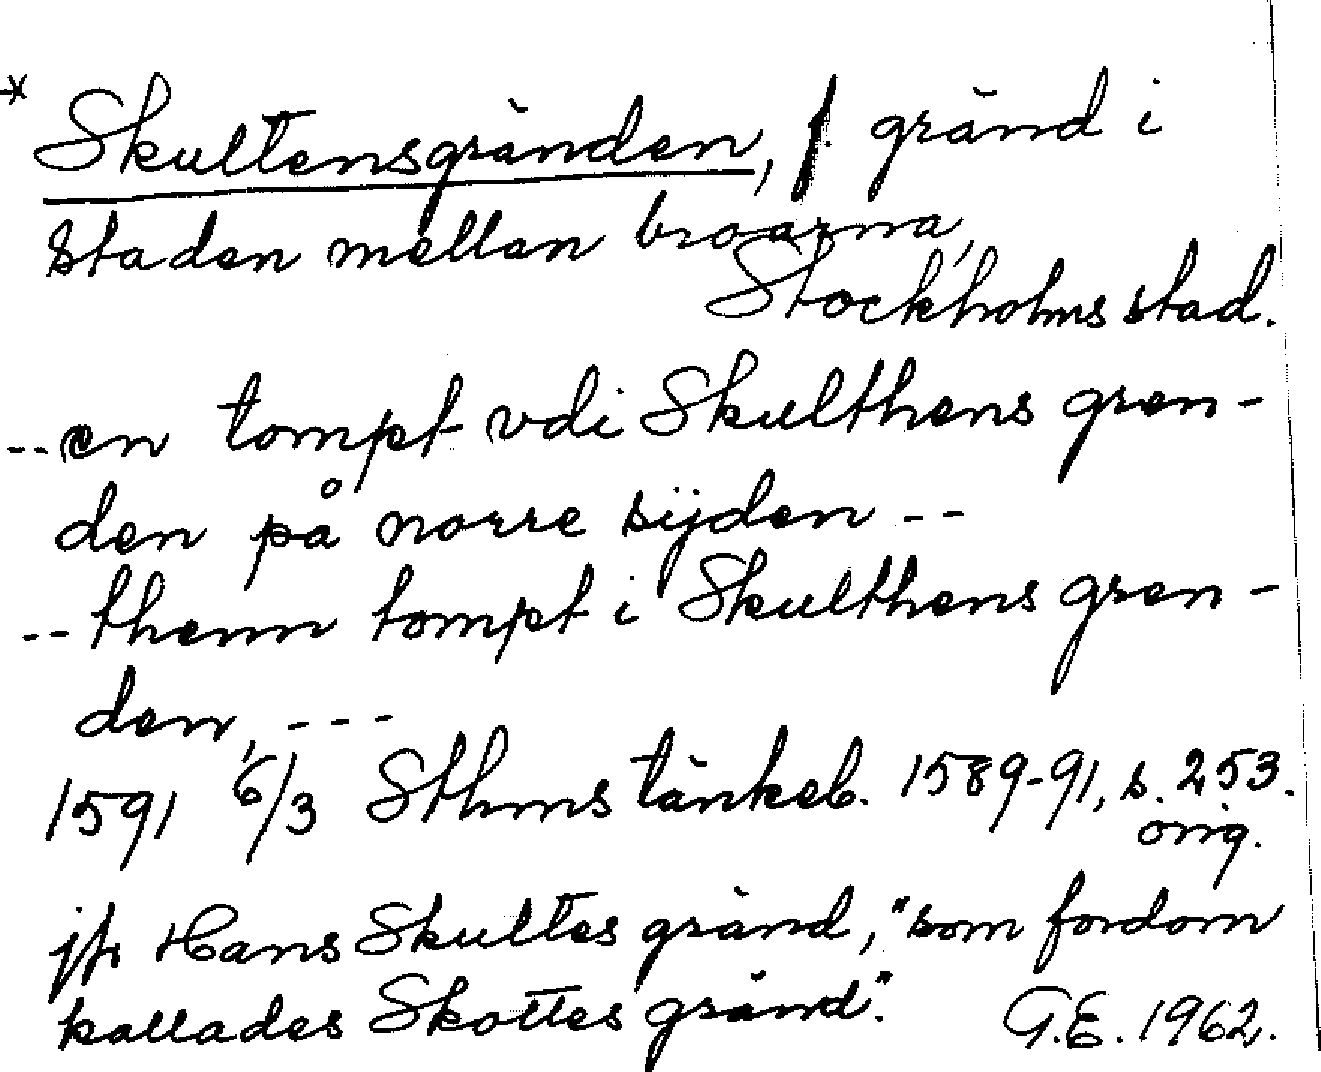 * Skultensgränden, f. gränd i
staden mellan broarna,
Stockholms stad.
--en tompt vdi Skulthens gren-
den på norre sijden --
--thenn tompt i Skulthens gren-
den, ---
1591 6/3 Sthms tänkeb. 1589-91, s. 253.
orig.
jfr Hans Skultes gränd, "som fordom
kallades Skottes gränd". G.E. 1962.